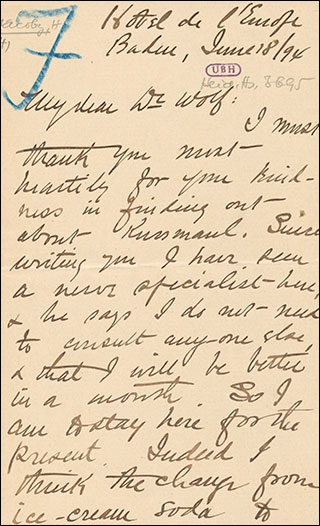 7
Hotel de l'Europe
Baden, June 18/94
UBH
Heid. Hs. 3695
My dear Dr Wolf:
I must
thank you most
heartily for your kind-
ness in finding out
about Kussmaul. Since
writing you I have seen
a nerve specialist here,
& he says I do not need
to consult any one else,
& that I will be better
in a month. So I
am to stay here for the
present. Indeed I
think the change from
ice-cream soda to